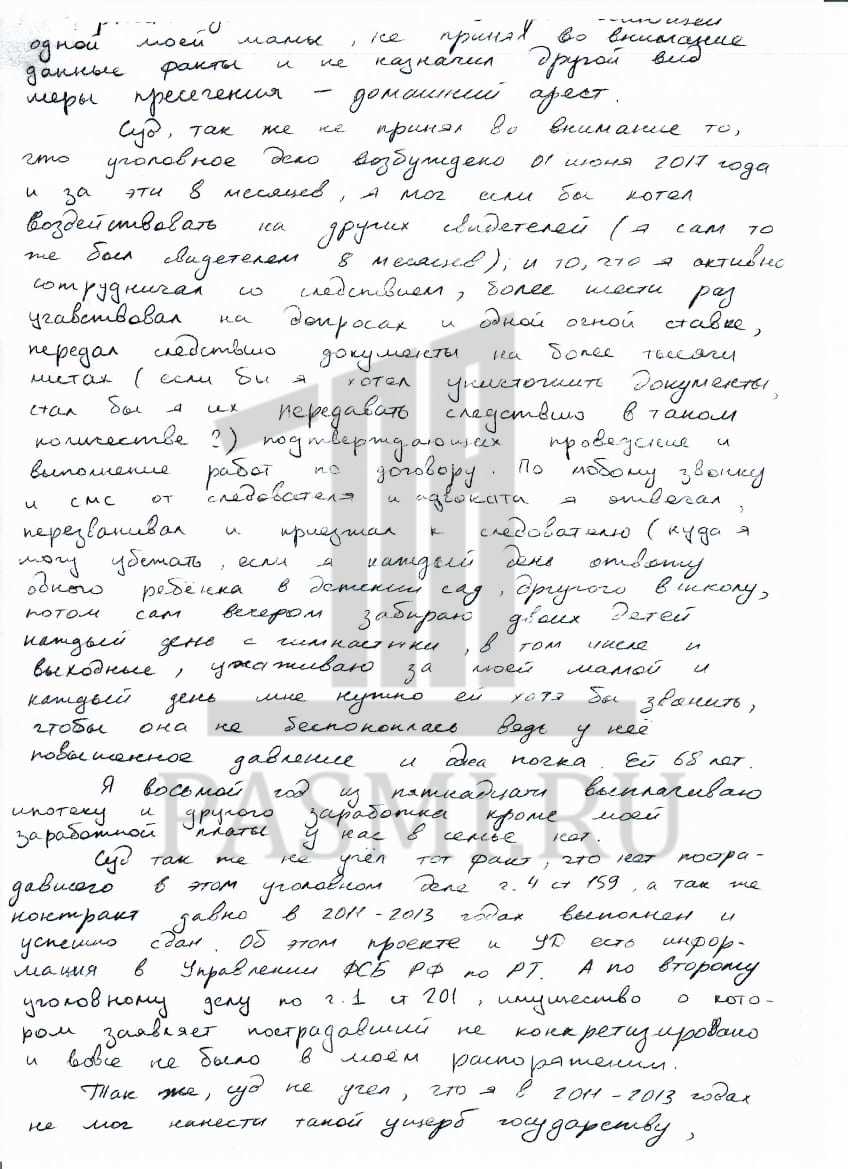 одной моей мамы, не принял во внимание
данные факты и не назначил другой вид
меры пресечения – домашний арест.
Суд, так же не принял во внимание то,
что уголовное дело возбуждено 01 июня 2017 года
и за эти 8 месяцев, я мог если бы хотел
воздействовать на других свидетелей (я сам то
же был свидетелем 8 месяцев); и то, что я активно
сотрудничал со следствием, более шести раз
учавствовал на допросах и одной очной ставке,
передал следствию документы на более тысячи
листах (если бы я хотел уничтожить документы,
стал бы я их передавать следствию в таком
количестве?) подтверждающих проведение и
выполнение работ по договору. По любому звонку
и смс от следователя и адвоката я отвечал,
перезванивал и приезжал к следователю (куда я
могу убежать, если я каждый день отвожу
одного ребёнка в детский сад, другого в школу,
потом сам вечером забираю двоих детей
каждый день с гимнастики, в том числе и
выходные, ухаживаю за моей мамой и
каждый день мне нужно ей хотя бы звонить,
чтобы она не беспокоилась ведь у неё
повышенное давление и одна почка. Ей 68 лет.
Я восьмой год из пятнадцати выплачиваю
ипотеку и другого заработка кроме моей
заработной платы у нас в семье нет.
Суд так же не учёл тот факт, что нет постра-
давшего в этом уголовном деле ч.4 ст 159, а так же
контракт давно в 2011-2013 годах выполнен и
успешно сдан. Об этом проекте и УД есть инфор-
мация в Управлении ФСБ РФ по РТ. А по второму
уголовному делу по ч.1 ст 201, имущество о кото-
ром заявляет пострадавший не конкретизировано
и вовсе не было в моём распоряжении.
Так же, суд не учел, что я в 2011-2013 годах
не мог нанести такой ущерб государству,
PASMI.RU